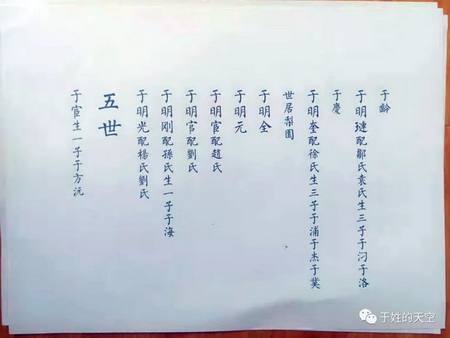 于齡
于明璉配鄒氏袁氏生三子于汈于洛
于慶
于明奎配徐氏生三子于浦于杰于冀
世居梨園
于明全
于明元
于明宦配趙氏
于明官配劉氏
于明刚配孫氏生一子于海
于明光配楊氏劉氏
五世
于宦生一子于方沅
于姓的天空